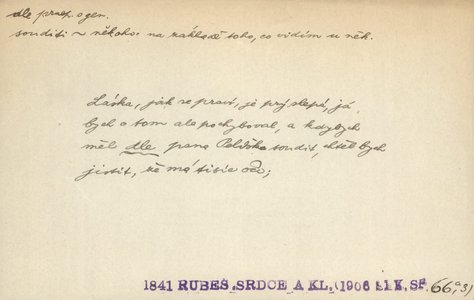 dle praep. o gen.
souditi ~ někoho: na základě toho, co vidím u něk.
Láska, jak se praví, je prý slepá, já
bych o tom ale pochyboval, a kdybych
měl dle pana soudit, chtěl bych
jistit, že má tisíc očí;
1841 RUBEŠ, SRDCE A KL. (1906 SF. 66, 3)